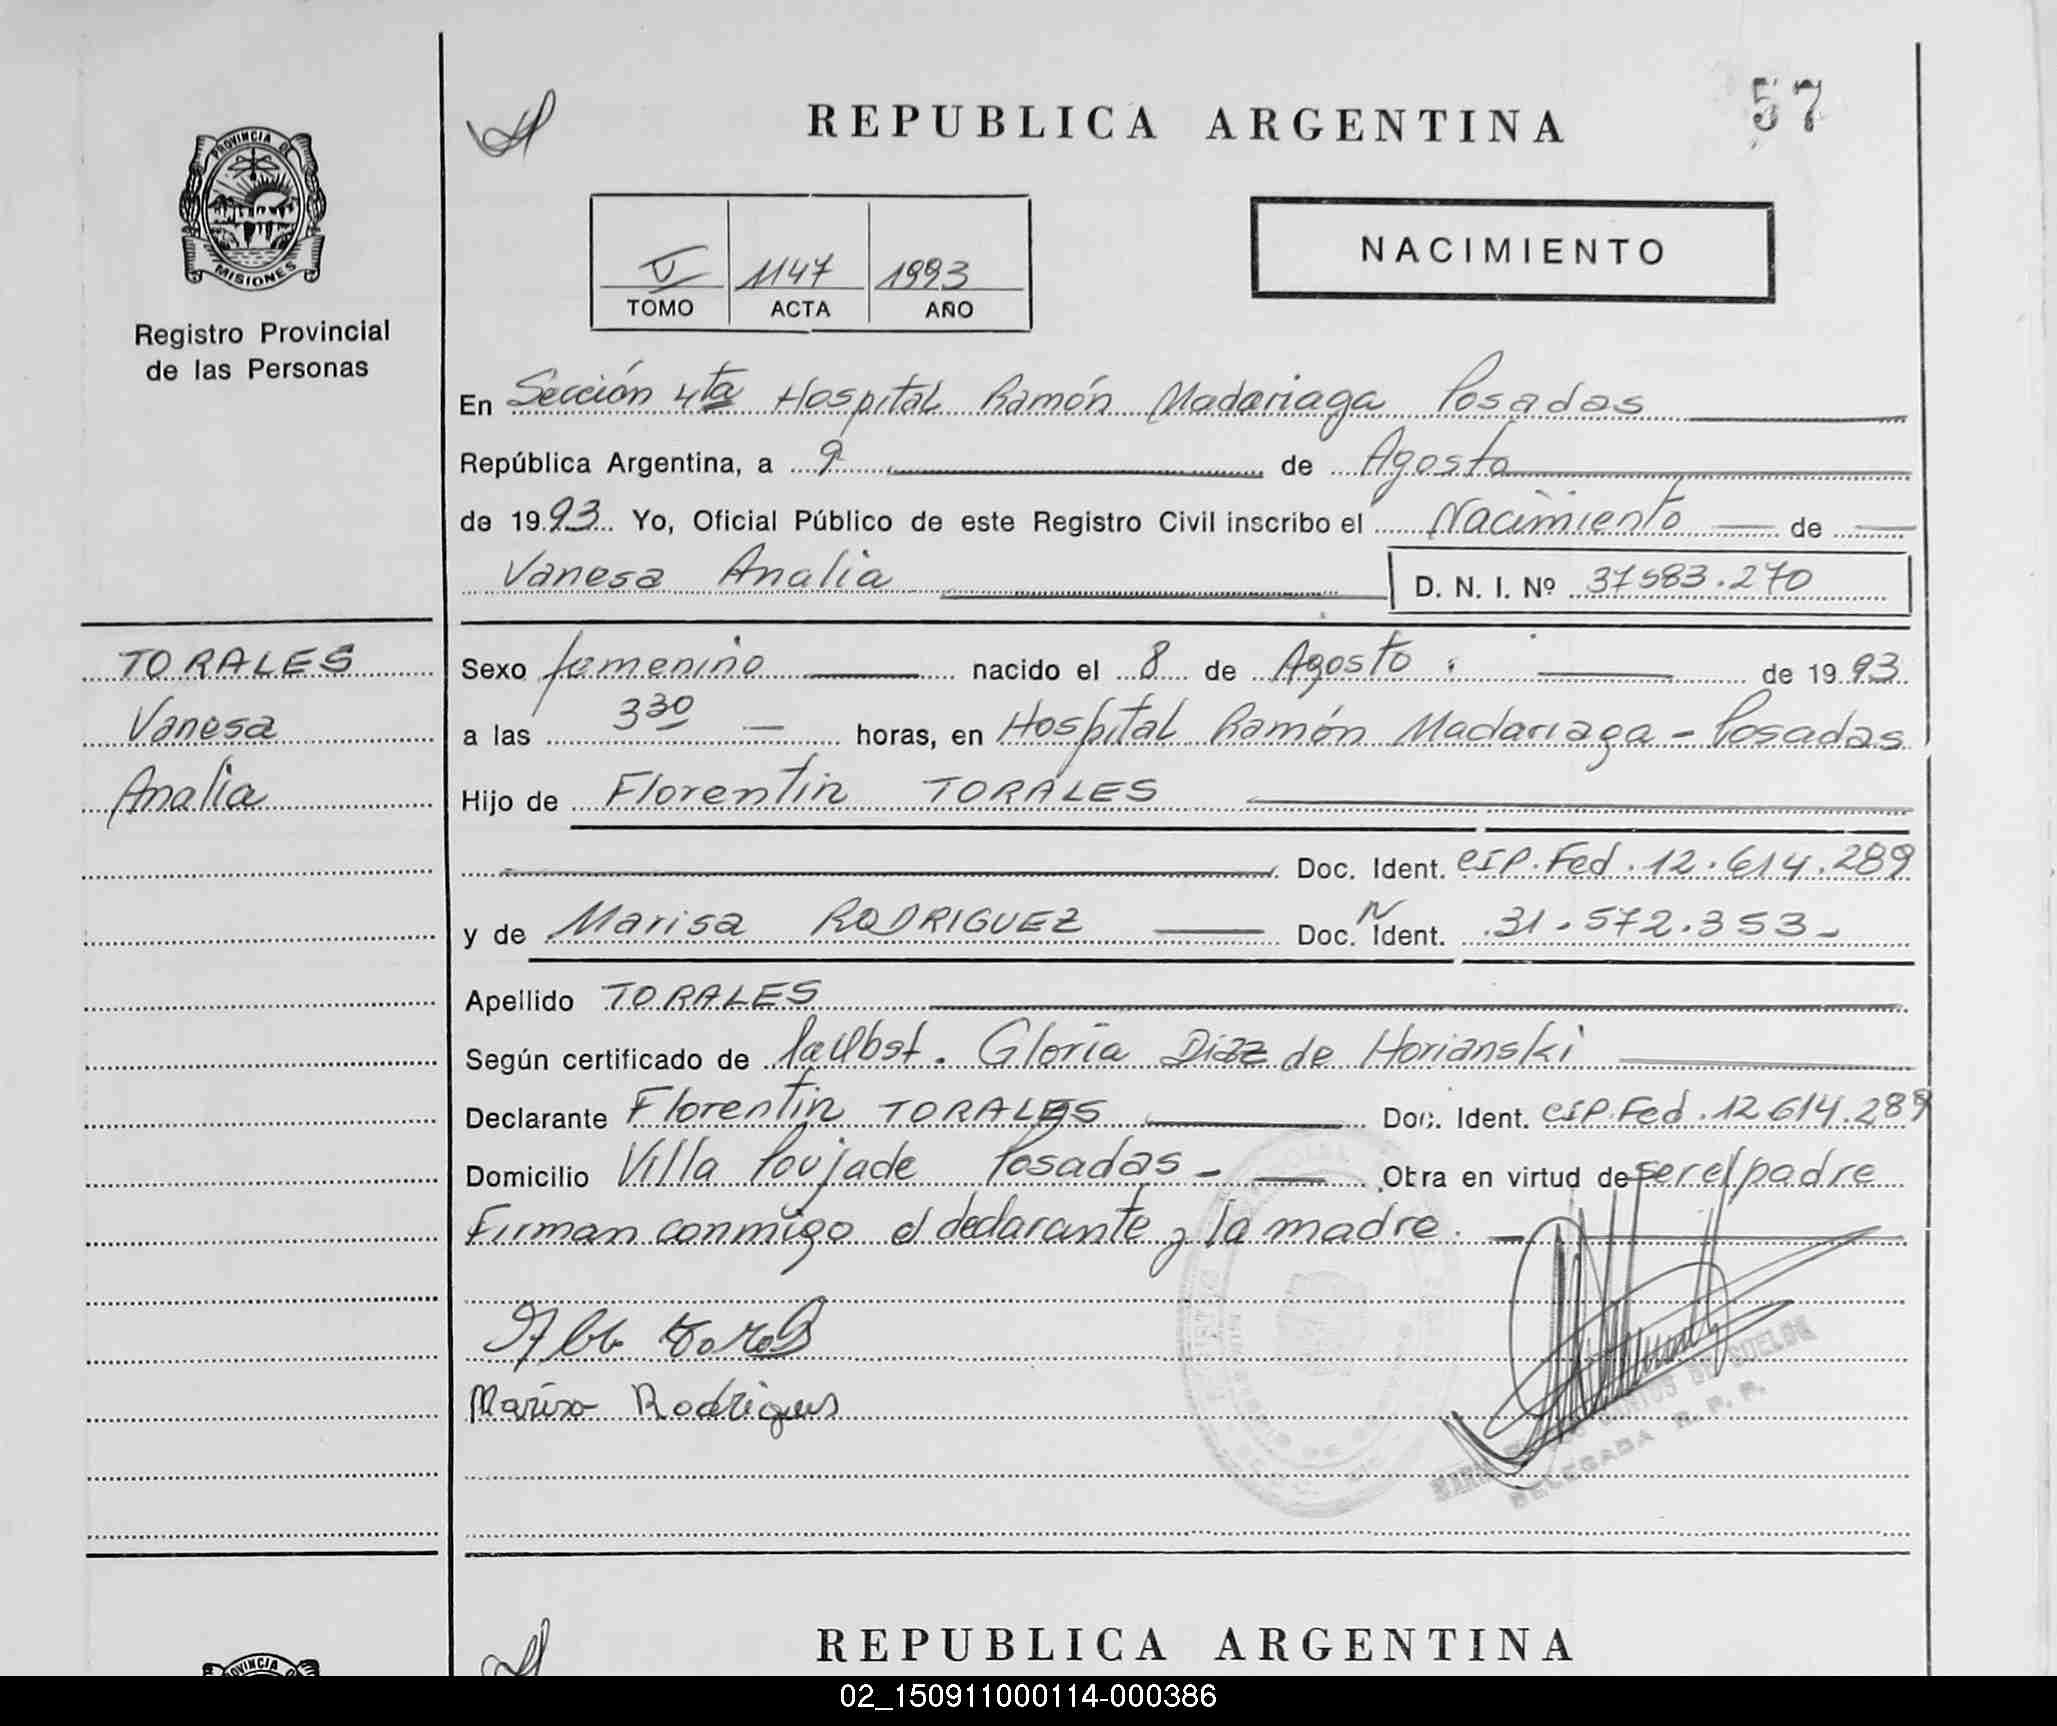 REPUBLICA ARGENTINA
57
PROVINCIA DE
MISIONES
Registro Provincial
de las Personas
V 1147 1993
TOMO ACTA AÑO
NACIMIENTO
En Sección 4ta Hospital Ramón Madariaga Posadas
República Argentina, a 9 de Agosto
de 1993 Yo, Oficial Público de este Registro Civil inscribo el Nacimiento de
Vanesa Analia D. N. I. Nº 37583.270
TORALES
Vanesa
Analia
Sexo femenino nacido el 8 de Agosto de 1993
a las 3 30 horas, en Hospital Ramón Madariaga - Posadas
Hijo de Florentin TORALES
Doc. Ident. CIP. Fed. 12.614.289
y de Marisa RODRIGUEZ Doc. N Ident. 31.572.353-
Apellido TORALES
Según certificado de la Obst. Gloria Diaz de Horianski
Declarante Florentin TORALES Doc. Ident. CIP. Fed. 12614.289
Domicilio Villa Poujade Posadas - Obra en virtud de ser el padre
Firman conmigo el declarante y la madre.
Marisa Rodrigues
DELEGADA R. P. P.
REPUBLICA ARGENTINA
02_150911000114-000386